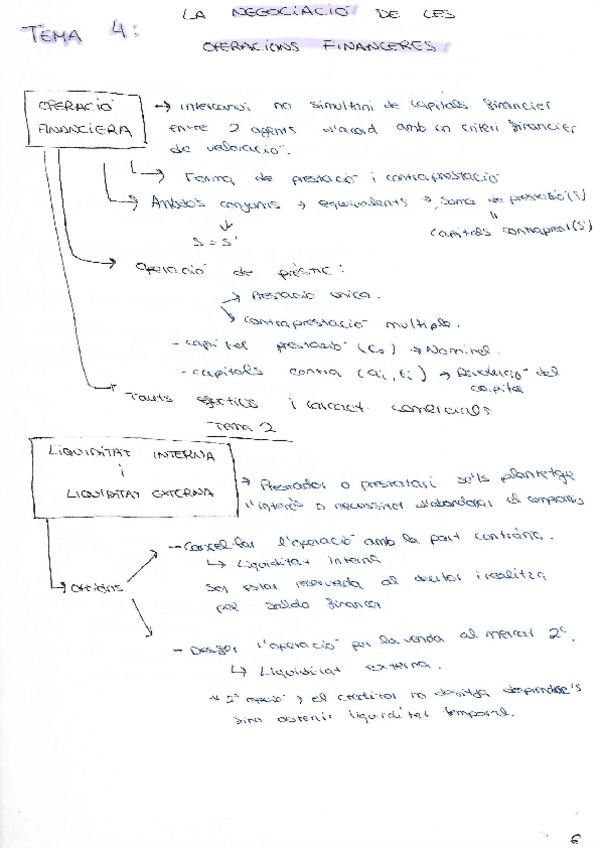 TEMA 4: LA NEGOCIACIÓ DE LES
OPERACIONS FINANCERES
OPERACIÓ
FINANCIERA
→ Intercanvi no simultani de capitals financier
entre 2 agents d'acord amb un criteri financier
de valoració.
→ Forma de prestació i contraprestació
→ Ambdós conjunts → equivalents → Suma de prestació (S)
"
S = S'
capitals contraprest (S')
→ Operació de préstec:
→ Prestació única.
→ contraprestació multiple.
- capital prestació (C₀) → Nominal.
- capitals contra (ai, ti) → Devolució del
capital
→ Tants efectius i caract. comercials
TEMA 2
LIQUIDITAT INTERNA
i
LIQUIDITAT EXTERNA
→ Prestador o prestatari se'ls plantetja
l'interès o necessitat d'abandonar el compromís
→ Opcions
- Cancel·lar l'operació amb la part contrària.
↳ Liquiditat interna
Sol estar reservada al deutor i realitza
pel saldo financer
- Desfer l'operació per la venda al mercat 2º.
↳ Liquiditat externa.
el creditor no desitja desprendre's
sinó obtenir liquiditat temporal.
6